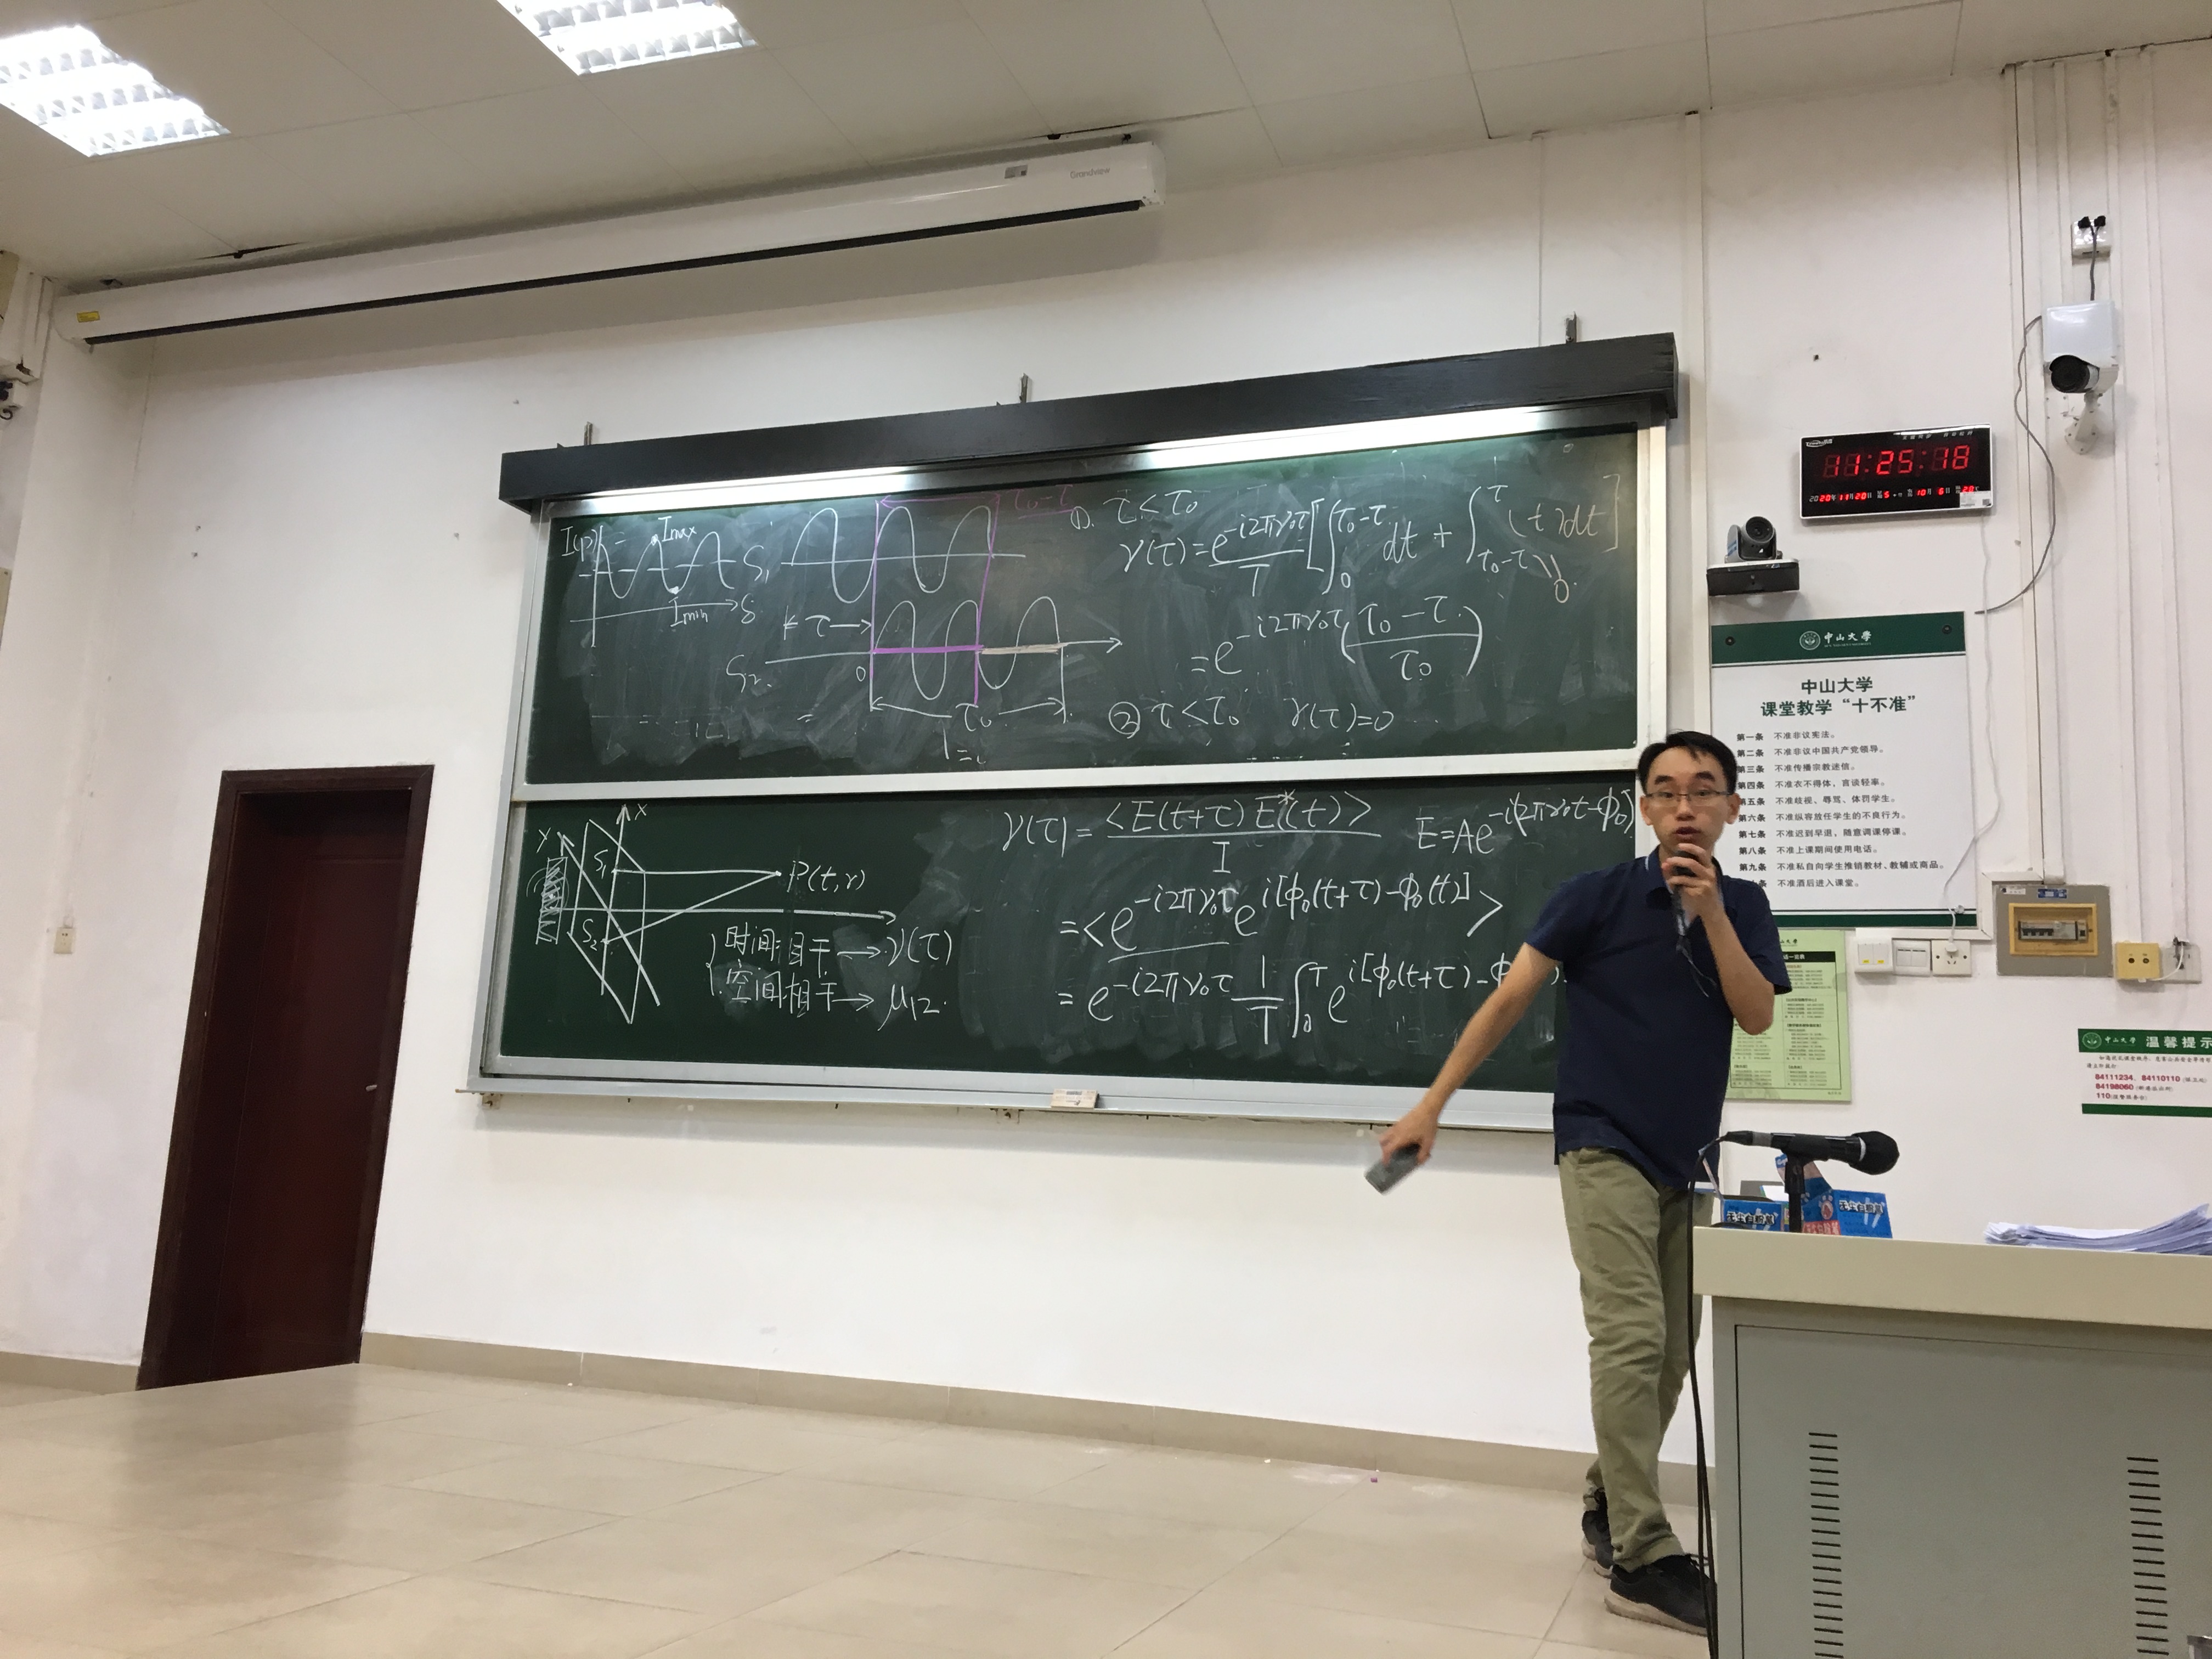 Grandview
I(p)
Imax
Imin
δ
S₁
τ₀-τ
τ
S₂
0
τ₀
①. τ<τ₀
γ(τ)=e^{-i2πν₀τ}/T[∫₀^{τ₀-τ}dt+∫_{τ₀-τ}^{τ}( t )dt]
0
=e^{-i2πν₀τ}(τ₀-τ/τ₀)
② τ<τ₀ γ(τ)=0
X
Y
S₁
S₂
P(t,r)
时间相干→γ(τ)
空间相干→μ₁₂.
γ(τ)=<E(t+τ)E*(t)>/I E=Ae^{-i(2πν₀t-ϕ₀)}
=<e^{-i2πν₀τ}e^{i[ϕ₀(t+τ)-ϕ₀(t)]}>
=e^{-i2πν₀τ}1/T∫₀^T e^{i[ϕ₀(t+τ)-ϕ
11:25:18
2020年11月20日
中山大学
中山大学
课堂教学“十不准”
第一条 不准非议宪法。
第二条 不准非议中国共产党领导。
第三条 不准传播宗教迷信。
第四条 不准衣不得体，言谈轻率。
第五条 不准歧视、辱骂、体罚学生。
第六条 不准纵容放任学生的不良行为。
第七条 不准迟到早退，随意调课停课。
第八条 不准上课期间使用电话。
第九条 不准私自向学生推销教材、教辅或商品。
不准酒后进入课堂。
中山大学 温馨提示
84111234、84110110
84198060
110
无尘白粉笔